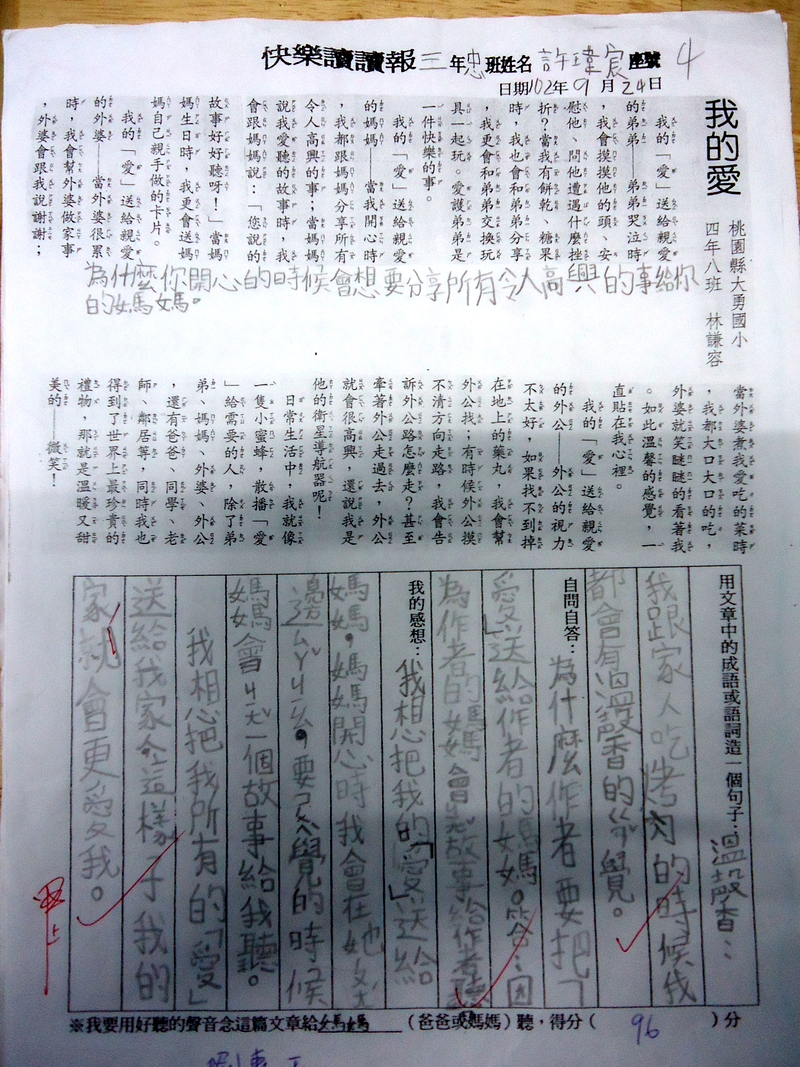 快樂讀讀報三年忠班姓名許瑋宸座號4
日期102年9月24日
我的愛
桃園縣大勇國小
四年八班 林謙容
我的「愛」送給親愛
的弟弟——弟弟哭泣時
,我會摸摸他的頭、安
慰他、問他遭遇什麼挫
折?當我有餅乾、糖果
時,我也會和弟弟分享
,我更會和弟弟交換玩
具一起玩。愛護弟弟是
一件快樂的事。
我的「愛」送給親愛
的媽媽——當我開心時
,我都跟媽媽分享所有
令人高興的事;當媽媽
說我愛聽的故事時,我
會跟媽媽說:「您說的
故事好好聽呀!」當媽
媽生日時,我更會送媽
媽自己親手做的卡片。
我的「愛」送給親愛
的外婆——當外婆很累
時,我會幫外婆做家事
,外婆會跟我說謝謝;
為什麼你開心的時候會想要分享所有令人高興的事給你
的媽媽。
當外婆煮我愛吃的菜時
,我都大口大口的吃,
外婆就笑瞇瞇的看著我
。如此溫馨的感覺,一
直貼在我心裡。
我的「愛」送給親愛
的外公——外公的視力
不太好,如果找不到掉
在地上的藥丸,我會幫
外公找;有時候外公摸
不清方向走路,我會告
訴外公路怎麼走?甚至
牽著外公走過去,外公
就會很高興,還說我是
他的衛星導航器呢!
日常生活中,我就像
一隻小蜜蜂,散播「愛
」給需要的人,除了弟
弟、媽媽、外婆、外公
,還有爸爸、同學、老
師、鄰居等,同時我也
得到了世界上最珍貴的
禮物,那就是溫暖又甜
美的——微笑!
用文章中的成語或語詞造一個句子:溫馨:
我跟家人吃烤肉的時候我
都會有溫馨的ㄍㄢˇ覺。
自問自答:為什麼作者要把「
愛」送給作者的媽媽。答:因
為作者的媽媽會說故事給作者聽
我的感想:我想把我的「愛」送給
媽媽,媽媽開心時我會在她
邊ㄙㄚˇㄐㄧㄠ,要ㄕㄨㄟˋ覺的時候
媽媽會ㄐㄧㄤˇ一個故事給我聽。
我想把我所有的「愛」
送給我家人這樣子我的
家就會更愛我。
※我要用好聽的聲音念這篇文章給媽媽(爸爸或媽媽)聽,得分(96)分